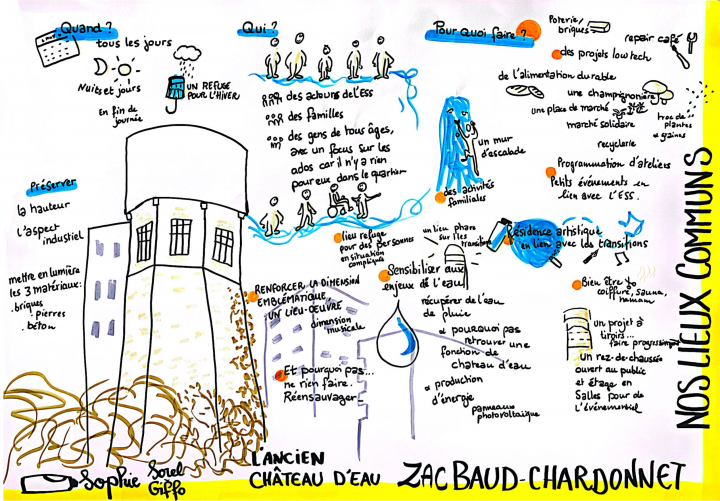 Quand ?
tous les jours
Nuits et jours
En fin de
journée
UN REFUGE
POUR L'HIVER
Préserver
la hauteur
L'aspect
industiel
mettre en lumière
les 3 matériaux:
. briques
. pierres
. béton
Qui ?
des acteurs de l'ESS
des familles
des gens de tous âges,
avec un focus sur les
ados car il n'y a rien
pour eux dans le quartier
lieu refuge
pour des personnes
en situation
compliquée
RENFORCER LA DIMENSION
EMBLÉMATIQUE
UN LIEU-OEUVRE
dimension
musicale
Et pourquoi pas...
ne rien faire.
Réensauvager
Pour quoi faire ?
Poterie/
briques
repair café
des projets low tech
de l'alimentation durable
une champignonière
une place de marché
marché solidaire
troc de
plantes
et graines
recyclerie
un mur
d'escalade
des activités
familiales
Programmation d'ateliers
Petits événements en
lien avec l'ESS.
un lieu phare
sur les
transitions
Résidence artistique
en lien avec les transitions
Sensibiliser aux
enjeux de l'eau
récupérer de l'eau
de pluie
pourquoi pas
retrouver une
fonction de
chateau d'eau
production
d'énergie
panneaux
photovoltaique
Bien être
coiffure, sauna,
hamam
un projet à
tiroirs...
faire progressivement
un rez-de-chaussée
ouvert au public
et étage en
Salles pour de
l'événementiel
NOS LIEUX COMMUNS
Sophie Sorel
Giffo
L'ANCIEN
CHÂTEAU D'EAU
ZAC BAUD-CHARDONNET